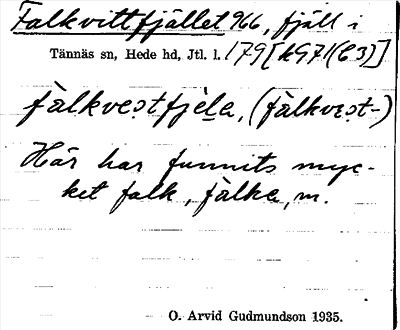 Falkvittfjället 966, fjäll i
Tännäs sn, Hede hd, Jtl. l. 179[k971(C3)]
fàlkveətfjèla, (fàlkvɛət-)
Här har funnits myc-
ket falk, fàlka, m.
O. Arvid Gudmundson 1935.